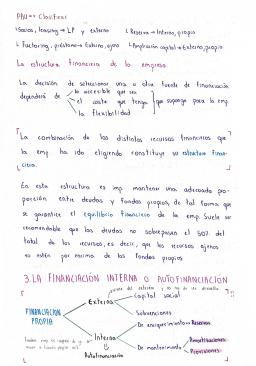 PAU → Clasificar
↳ Socios, leasing → LP y externo
↳ Reserva → Interno, propio
↳ Factoring, préstamo → Externo, ajeno
↳ Ampliación capital → Externo, propio
La estructura financiera de la empresa
La decisión de seleccionar una u otra fuente de financiación
dependerá de
lo accesible que sea
el coste que tenga
que suponga para la emp.
la flexibilidad
La combinación de las distintas recursos financieros que
la emp ha ido eligiendo constituye su estructura finan-
ciera.
En esta estructura es imp. mantener una adecuada pro-
porción entre deudas y fondos propios, de tal forma que
se garantice el equilibrio financiero de la emp. Suele ser
recomendable que las deudas no sobrepasen el 50% del
total de los recursos, es decir, que los recursos ajenos
no estén por encima de los fondos propios
3. LA FINANCIACIÓN INTERNA O AUTOFINANCIACIÓN
Capital social
Externa
Subvenciones
FINANCIACIÓN
PROPIA
De enriquecimiento → Reservas
Interna
Amortizaciones
De mantenimiento
Provisiones
Autofinanciación